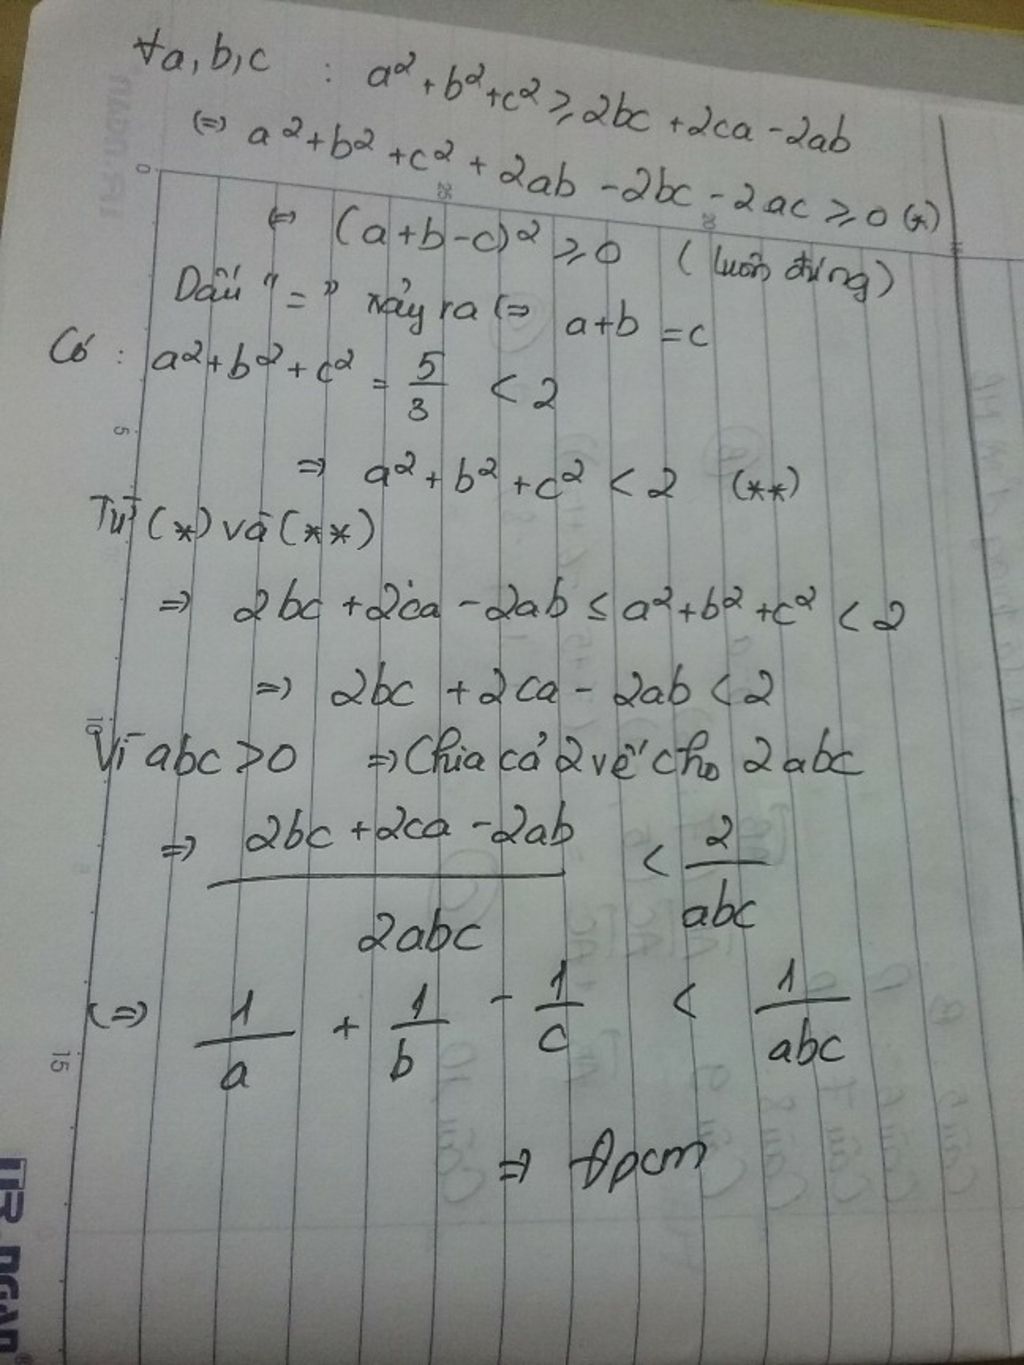 ∀a,b,c : a²+b²+c² ≥ 2bc +2ca -2ab
(=) a²+b²+c²+2ab -2bc -2ac ≥0 (*)
(=) (a+b-c)² ≥0 (luôn đúng)
Dấu "=" xảy ra (=) a+b =c
Có : a²+b²+c² = 5/3 < 2
=) a²+b²+c² < 2 (**)
Từ (*) và (**)
=) 2bc +2ca -2ab ≤ a²+b²+c² < 2
=) 2bc +2ca - 2ab < 2
Vì abc >0 =) Chia cả 2 vế cho 2abc
=) (2bc +2ca -2ab)/2abc < 2/abc
(=) 1/a + 1/b - 1/c < 1/abc
=) Đpcm
0
5
10
15